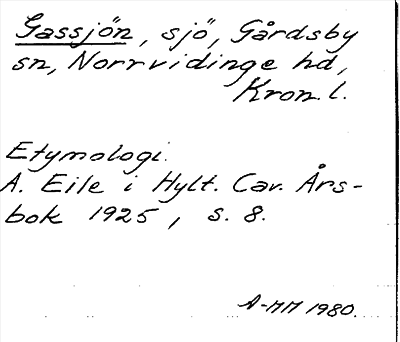 Gassjön, sjö, Gårdsby
sn, Norrvidinge hd,
Kron. l.
Etymologi.
A. Eile i Hylt. Cav. Års-
bok 1925, s. 8.
A-MH 1980.